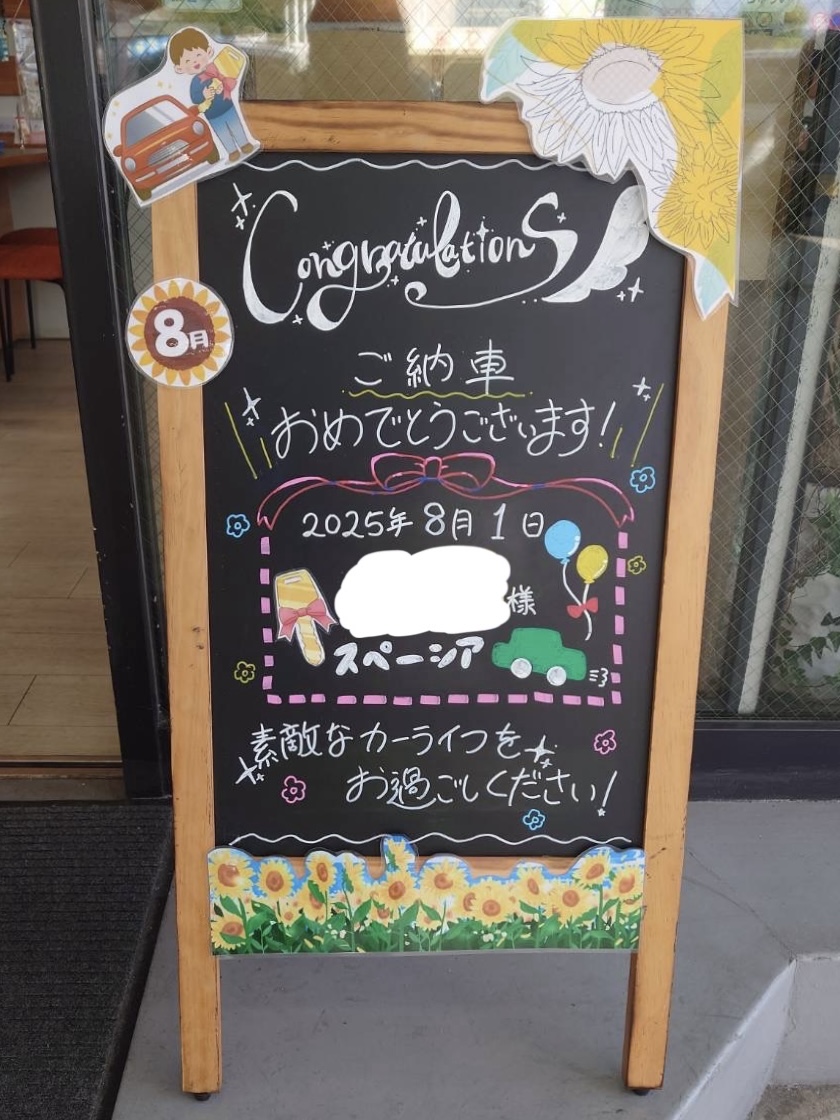 Congratulations
8月
ご納車
おめでとうございます!
2025年 8月 1日
様
スペーシア
素敵なカーライフを
お過ごしください!